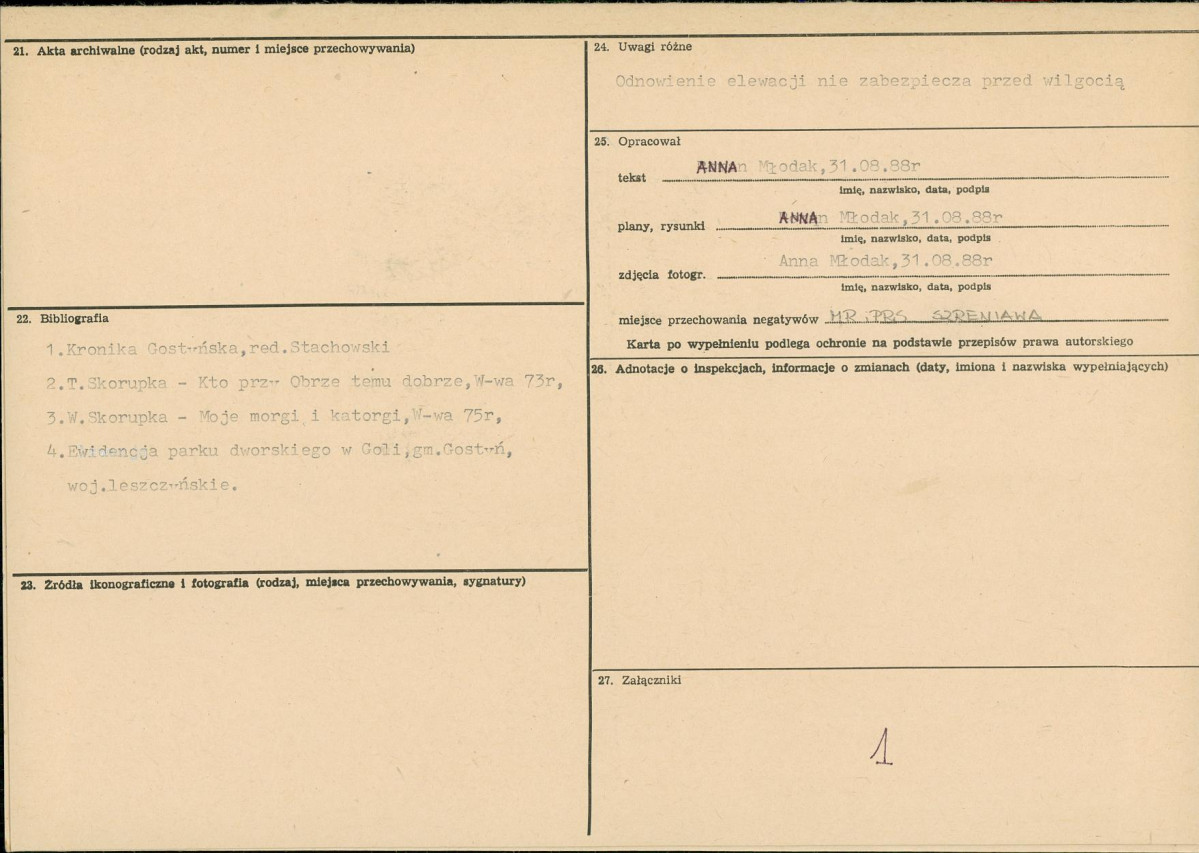 21. Akta archiwalne (rodzaj akt, numer i miejsce przechowywania)
22. Bibliografia
1.Kronika Gostyńska,red.Stachowski
2.T.Skorupka - Kto przy Obrze temu dobrze,W-wa 73r,
3.W.Skorupka - Moje morgi i katorgi,W-wa 75r,
4.Ewidencja parku dworskiego w Goli,gm.Gostyń,
woj.leszczyńskie.
23. Źródła ikonograficzne i fotografia (rodzaj, miejsca przechowywania, sygnatury)
24. Uwagi różne
Odnowienie elewacji nie zabezpiecza przed wilgocią
25. Opracował
tekst ANNA Młodak,31.08.88r
imię, nazwisko, data, podpis
plany, rysunki ANNA Młodak,31.08.88r
imię, nazwisko, data, podpis
zdjęcia fotogr. Anna Młodak,31.08.88r
imię, nazwisko, data, podpis
miejsce przechowania negatywów MR i PRS SZRENIAWA
Karta po wypełnieniu podlega ochronie na podstawie przepisów prawa autorskiego
26. Adnotacje o inspekcjach, informacje o zmianach (daty, imiona i nazwiska wypełniających)
27. Załączniki
1